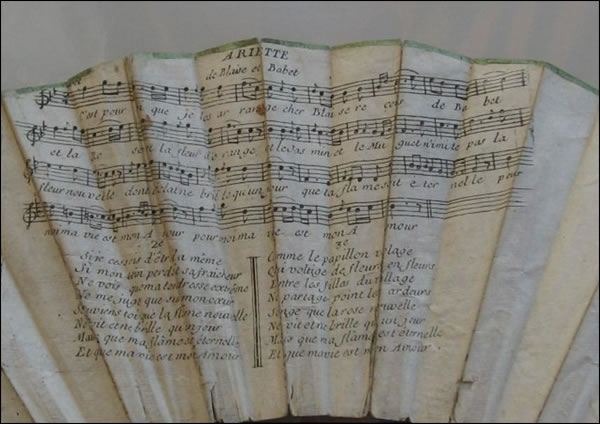 ARIETTE
de Blaise et Babet
C'est pour que je les ar range cher Blai se re cois de Ba bet
et la sont la fleur d'o range et le Jas min et le Mu guet n'imi te pas la
fleur nou velle dont l'eclat ne bril le qu'un jour que ta fla me soit e ter nel le pour
moi ma vie est mon A mour pour moi ma vie est mon A mour
2e
Si je cesois d'etr la même
Si mon perdit sa fraicheur
Ne vois que ma tendresse extrême
Ne me juge que sur mon cœur
Souviens toi que la nouvelle
Ne vit et ne brille qu'un jour
Mais que ma flâme est éternelle
Et que ma vie est mon Amour
3e
Comme le papillon volage
Qui voltige de fleurs en fleurs
Entre les filles du village
Ne partage point tes ardeurs
Songe que la rose nouvelle
Ne vit et ne brille qu'un jour
Mais que ma flâme est éternelle
Et que ma vie est mon Amour